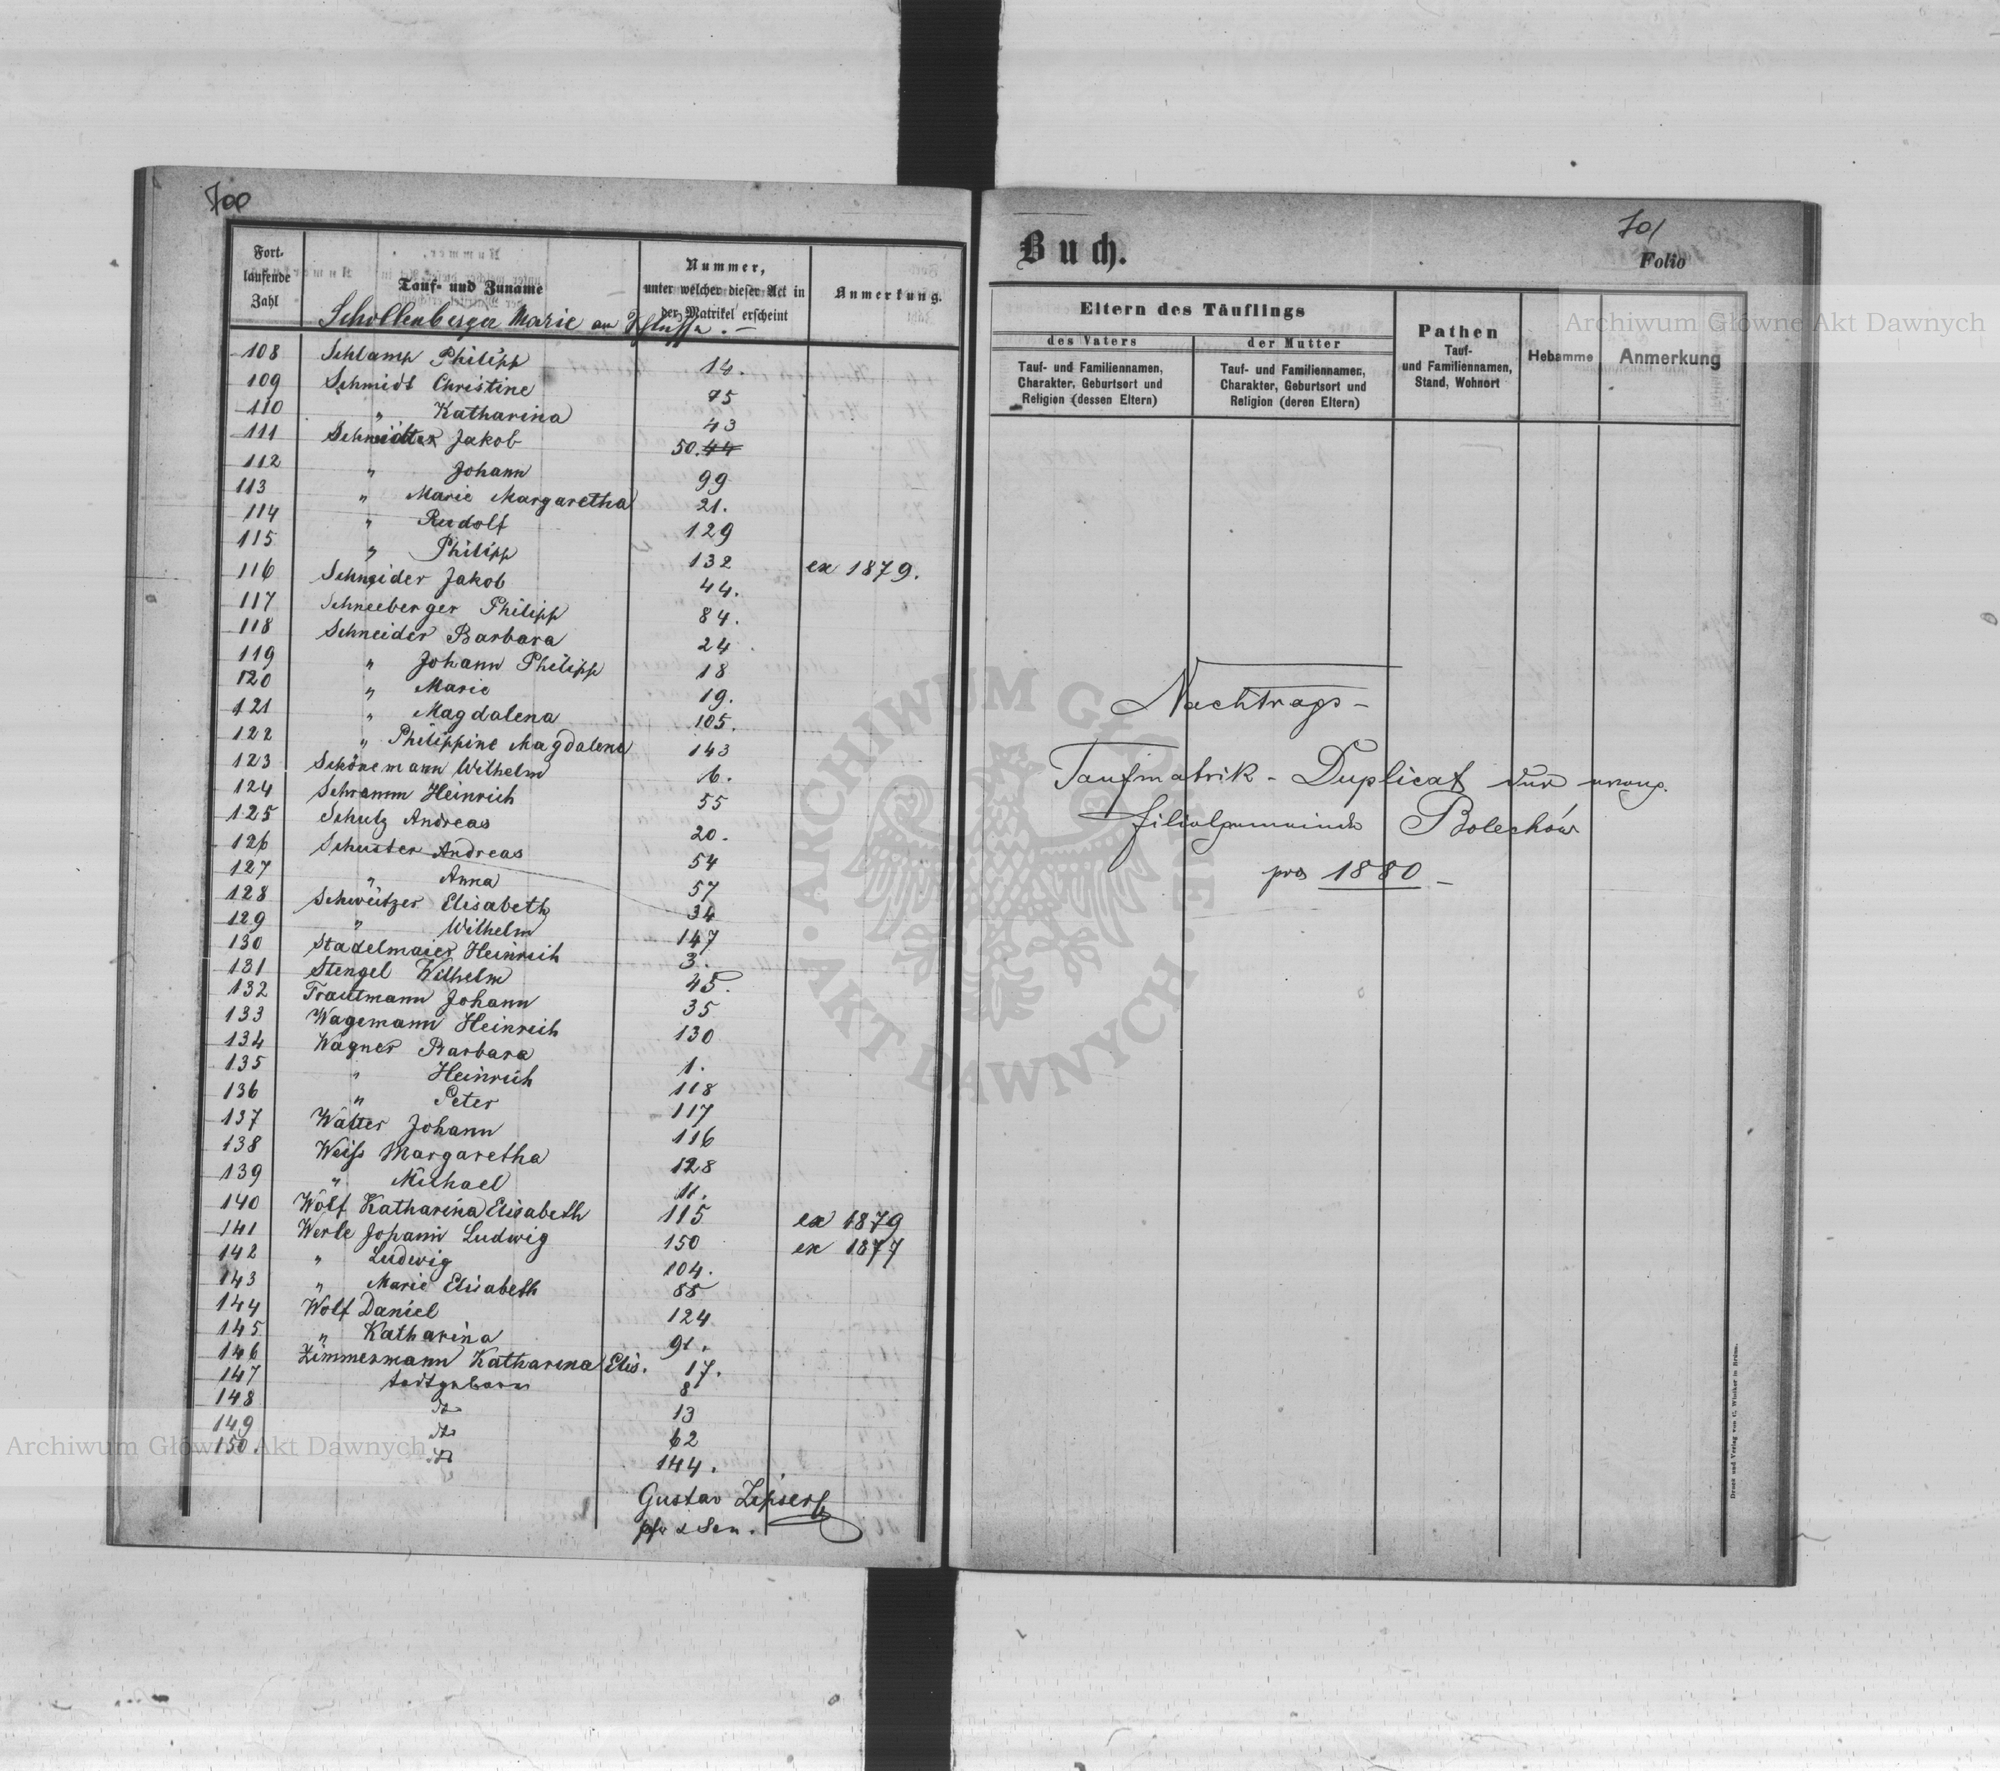 700
Fort-
laufende
Zahl
Tauf- und Zuname
Nummer,
unter welcher dieser Act in
der Matrikel erscheint
Anmerkung.
Schollenberger Marie am Schlusse. —
108 Schlamp Philipp 14.
109 Schmidt Christine 75
110 " Katharina 43
111 Schmidter Jakob 50. 44
112 " Johann 99
113 " Marie Margaretha 21.
114 " Rudolf 129
115 " Philipp 132 ex 1879.
116 Schneider Jakob 44.
117 Schneeberger Philipp 84.
118 Schneider Barbara 24
119 " Johann Philipp 18
120 " Marie 19.
121 " Magdalena 105.
122 " Philippine Magdalena 143
123 Schönemann Wilhelm 6.
124 Schramm Heinrich 55
125 Schutz Andreas 20.
126 Schuster Andreas 54
127 " Anna 57
128 Schweitzer Elisabeth 34
129 " Wilhelm 147
130 Stadelmaier Heinrich 3.
131 Stengel Wilhelm 45.
132 Trautmann Johann 35
133 Wagemann Heinrich 130
134 Wagner Barbara 1.
135 " Heinrich 118
136 " Peter 117
137 Walter Johann 116
138 Weiß Margaretha 128
139 " Michael 11.
140 Wolf Katharina Elisabeth 115 ex 1879
141 Werle Johann Ludwig 150 ex 1877
142 " Ludwig 104.
143 " Marie Elisabeth 88
144 Wolf Daniel 124
145 " Katharina 91.
146 Zimmermann Katharina Elis. 17.
147 todtgeboren 8
148 dto 13
149 dto 62
150. dto 144.
Gustav Zipser
pfr & Sen.
701
Buch.
Folio
Eltern des Täuflings
des Vaters
Tauf- und Familiennamen,
Charakter, Geburtsort und
Religion (dessen Eltern)
der Mutter
Tauf- und Familiennamen,
Charakter, Geburtsort und
Religion (deren Eltern)
Pathen
Tauf-
und Familiennamen,
Stand, Wohnort
Hebamme
Anmerkung
Nachtrags-
Taufmatrik - Duplicat der evang.
Filialgemeinde Bolechów
pro 1880 —
Druck und Verlag von C. Winiker in Brünn.
Archiwum Główne Akt Dawnych
Archiwum Główne Akt Dawnych
ARCHIWUM GŁÓWNE · AKT DAWNYCH ·